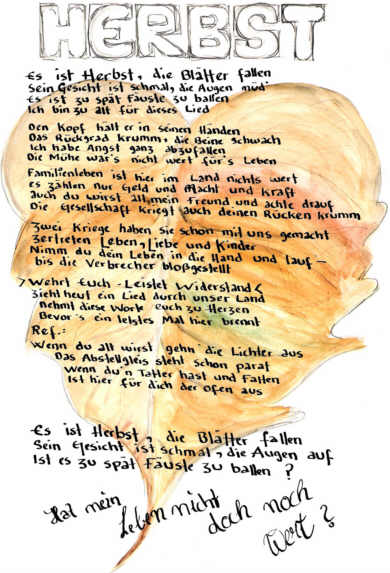 HERBST
Es ist Herbst, die Blätter fallen
Sein Gesicht ist schmal, die Augen müd'
Es ist zu spät Fäuste zu ballen
Ich bin zu alt für dieses Lied
Den Kopf hält er in seinen Händen
Das Rückgrad krumm, die Beine schwach
Ich habe Angst ganz abzufallen
Die Mühe wär's nicht wert für's Leben
Familienleben ist hier im Land nichts wert
es zählen nur Geld und Macht und Kraft
auch du wirst alt mein Freund und achte drauf
Die Gesellschaft kriegt auch deinen Rücken krumm
Zwei Kriege haben sie schon mit uns gemacht
Zertreten Leben, Liebe und Kinder
Nimm du dein Leben in die Hand und lauf –
bis die Verbrecher bloßgestellt
> Wehrt Euch - Leistet Widerstand <
Zieht heut ein Lied durch unser Land
nehmt diese Worte euch zu Herzen
Bevor's ein letztes Mal hier brennt
Ref.:
Wenn du alt wirst gehn die Lichter aus
Das Abstellgleis steht schon parat
Wenn du'n Tatter hast und Falten
Ist hier für dich der Ofen aus
Es ist Herbst, die Blätter fallen
Sein Gesicht ist schmal, die Augen auf
Ist es zu spät Fäuste zu ballen ?
Hat mein Leben nicht doch noch Wert ?